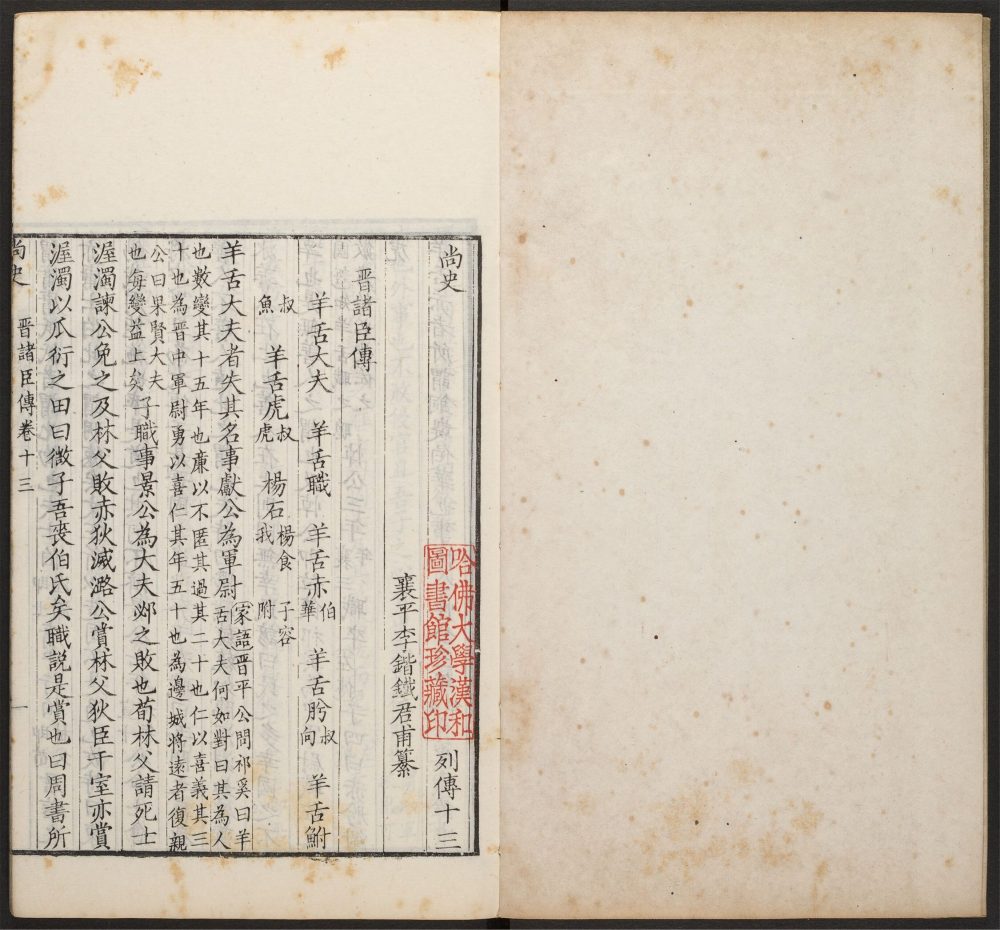 尚史　列傳十三
襄平李鍇鐵君甫纂
哈佛大學漢和
圖書館珍藏印
晋諸臣傳
羊舌大夫　羊舌職　羊舌赤伯華　羊舌肸叔向　羊舌鮒
叔魚　羊舌虎叔虎　楊石楊食我　附子容
羊舌大夫者失其名事獻公為軍尉家語晋平公問祁奚曰羊
舌大夫何如對曰其為人
也數變其十五年也廉以不匿其過其二十也仁以喜義其三
十也為晋中軍尉勇以喜仁其年五十也為邊城將遠者復親
公曰果賢大夫
也每變益上矣子職事景公為大夫邲之敗也荀林父請死士
渥濁諫公免之及林父敗赤狄滅潞公賞林父狄臣千室亦賞
渥濁以瓜衍之田曰微子吾喪伯氏矣職説是賞也曰周書所
尚史　晋諸臣傳卷十三　一